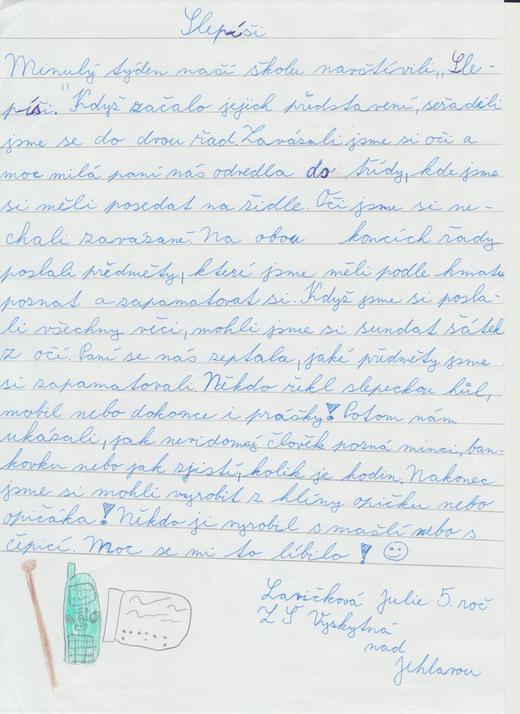 Slepíši
Minulý týden naší školu navštívili „Sle-
píši." Když začalo jejich představení, seřadili
jsme se do dvou řad. Zavázali jsme si oči a
moc milá paní nás odvedla do třídy, kde jsme
si měli posedat na židle. Oči jsme si ne-
chali zavázané. Na obou koncích řady
poslali předměty, které jsme měli podle hmatu
poznat a zapamatovat si. Když jsme si posla-
li všechny věci, mohli jsme si sundat šátek
z očí. Paní se nás zeptala, jaké předměty jsme
si zapamatovali. Někdo řekl slepeckou hůl,
mobil nebo dokonce i prášky! Potom nám
ukázali, jak nevidomý člověk pozná minci, ban-
kovku nebo jak zjistí, kolik je hodin. Nakonec
jsme si mohli vyrobit z hlíny opičku nebo
opičáka! Někdo ji vyrobil s mašlí nebo s
čepicí. Moc se mi to líbilo! ☺
Lavičková Julie 5. roč
ZŠ Vyskytná
nad
Jihlavou